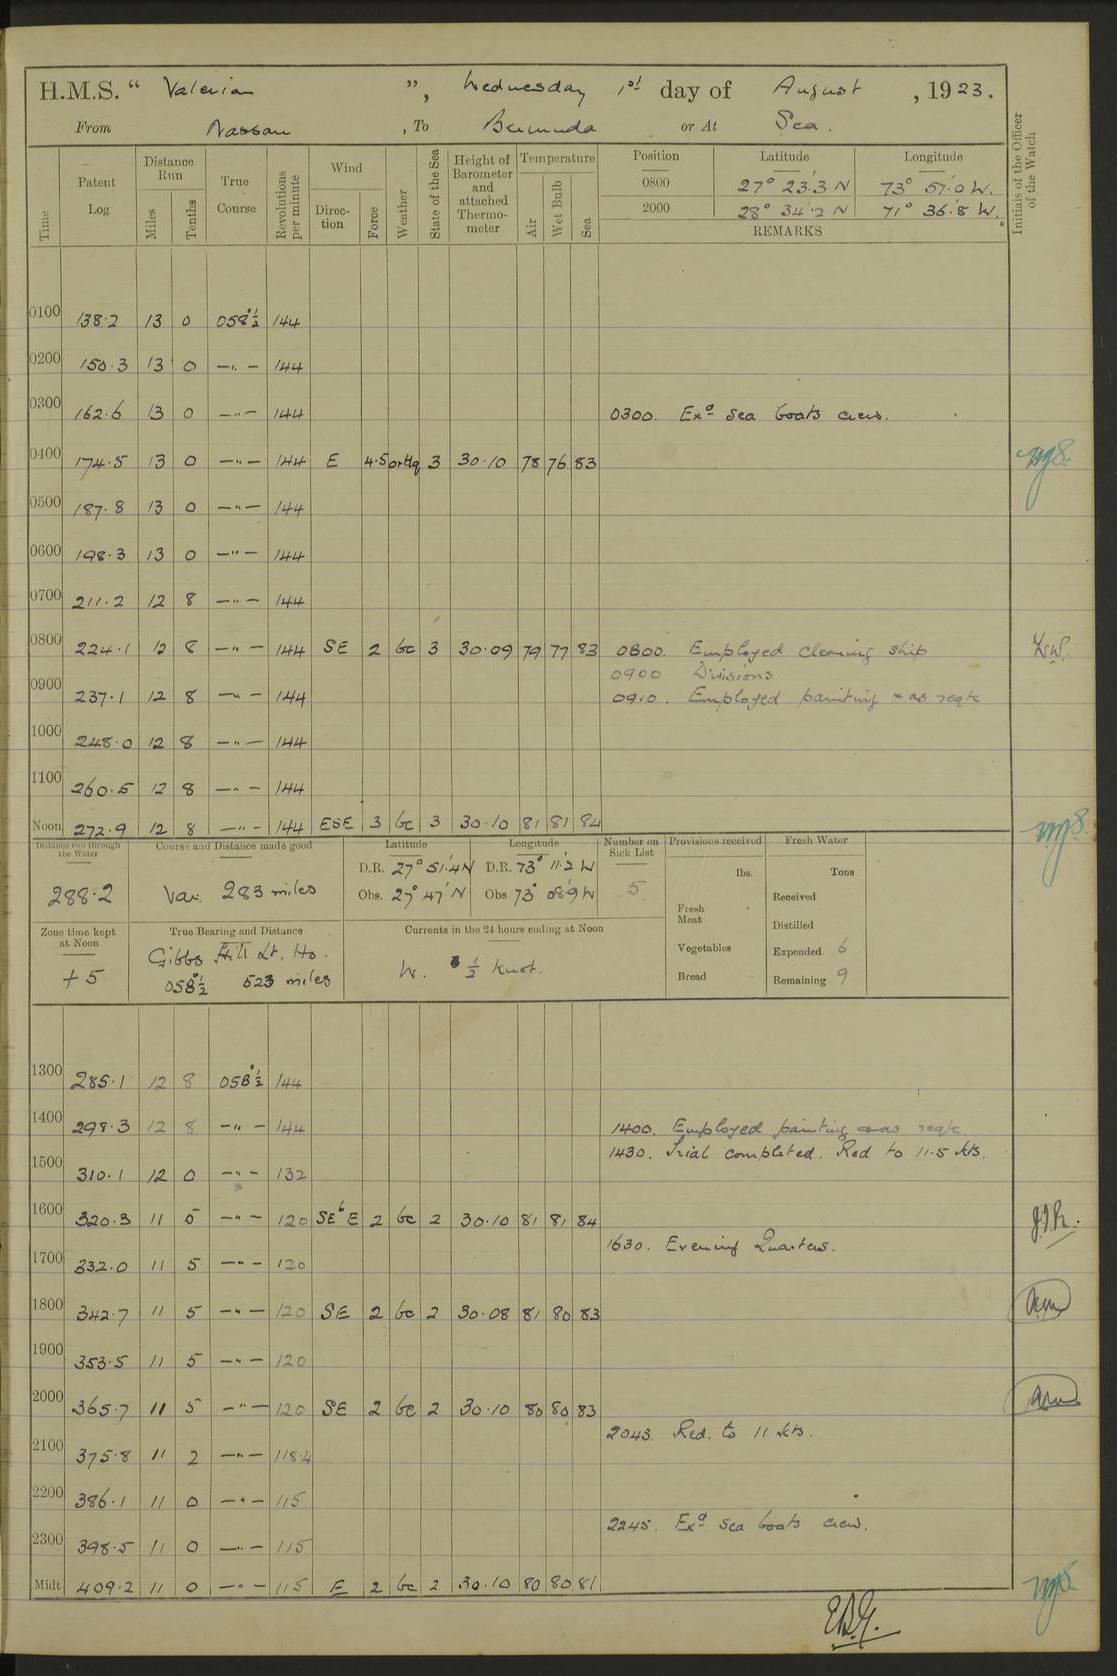 H.M.S. “ Valerian ”, Wednesday 1st day of August , 1923.
From Nassau , To Bermuda or At Sea.
Time Patent Log Distance Run Miles Tenths True Course Revolutions per minute Wind Direction Force Weather State of the Sea Height of Barometer and attached Thermometer Temperature Air Wet Bulb Sea Position Latitude Longitude Initials of the Officer of the Watch
0800 27° 23.3 N 73° 57.0 W.
2000 28° 34.2 N 71° 36.8 W.
REMARKS
0100 138.2 13 0 058°½ 144
0200 150.3 13 0 —"— 144
0300 162.6 13 0 —"— 144 0300. Exd Sea boats crew.
0400 174.5 13 0 —"— 144 E 4.5 3 30.10 78 76 83
0500 187.8 13 0 —"— 144
0600 198.3 13 0 —"— 144
0700 211.2 12 8 —"— 144
0800 224.1 12 8 —"— 144 SE 2 bc 3 30.09 79 77 83 0800. Employed cleaning ship
0900 Divisions
0900 237.1 12 8 —"— 144 0910. Employed painting & as reqte
1000 248.0 12 8 —"— 144
1100 260.5 12 8 —"— 144
Noon 272.9 12 8 —"— 144 ESE 3 bc 3 30.10 81 81 84
Distance run through the Water Course and Distance made good Latitude Longitude Number on Sick List Provisions received Fresh Water
288.2 Var. 283 miles D.R. 27° 51.4 N D.R. 73° 11.2 W lbs. Tons
Obs. 27° 47' N Obs 73° 08.9 W 5 Received
Fresh Meat Distilled
Zone time kept at Noon True Bearing and Distance Currents in the 24 hours ending at Noon
+ 5 Gibbs Hill Lt. Ho. W. ½ knot. Vegetables Expended 6
058°½ 523 miles Bread Remaining 9
1300 285.1 12 8 058°½ 144
1400 298.3 12 8 —"— 144 1400. Employed painting & as reqte.
1430. Trial completed. Red to 11.5 kts.
1500 310.1 12 0 —"— 132
1600 320.3 11 5 —"— 120 SEbE 2 bc 2 30.10 81 81 84
1630. Evening Quarters.
1700 332.0 11 5 —"— 120
1800 342.7 11 5 —"— 120 SE 2 bc 2 30.08 81 80 83
1900 353.5 11 5 —"— 120
2000 365.7 11 5 —"— 120 SE 2 bc 2 30.10 80 80 83
2045. Red. to 11 kts.
2100 375.8 11 2 —"— 118.4
2200 386.1 11 0 —"— 115
2245. Exd Sea boats crew.
2300 398.5 11 0 —"— 115
Midt 409.2 11 0 —"— 115 E 2 bc 2 30.10 80 80 81